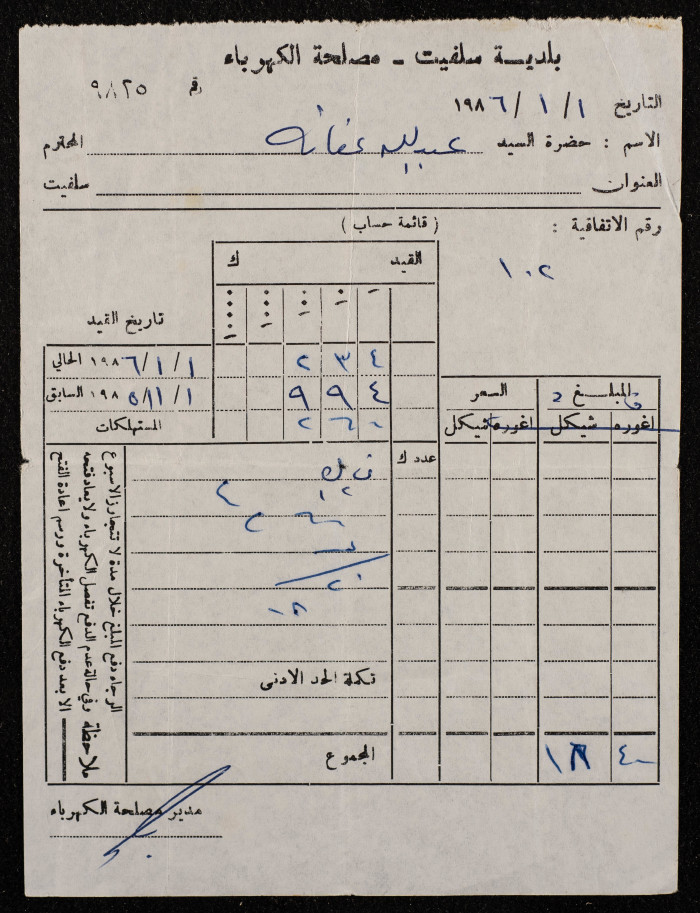 بلديـــة سلفيت - مصلحة الكهرباء
رقم ٩٨٢٥
التاريخ ١ / ١ / ١٩٨٦
الاسم : حضرة السيد عبدالله عفانه المحترم
العنوان سلفيت
رقم الاتفاقية :
١٠٢
( قائمة حساب )
القيد ك
تاريخ القيد
٢ ٣ ٤
١ / ١ / ١٩٨٦ الحالي
٩ ٩ ٤
١ / ١١ / ١٩٨٥ السابق
المستهلكات
المبلـــغ السعر
اغوره شيكل اغوره شيكل
عدد ك
تكملة الحد الادنى
المجموع
الرجاء دفع المبلغ خلال مدة لا تتجاوز الاسبوع
وفي حالة عدم الدفع تفصل الكهرباء ولا يعاد فتحه
الا بعد دفع الكهرباء المتأخرة ورسم اعادة الفتح
ملاحظة
مدير مصلحة الكهرباء